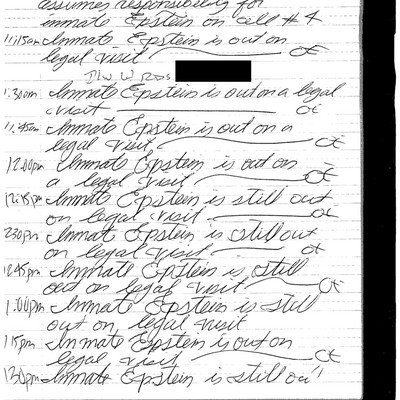 assumes responsibility for
inmate Epstein on cell #4
11:15am Inmate Epstein is out on
legal visit
1:30am Inmate Epstein is out on a legal
visit
11:45am Inmate Epstein is out on a
legal visit
12:00pm Inmate Epstein is out on
a legal visit
12:15pm Inmate Epstein is still out
on legal visit
230pm Inmate Epstein is still out
on legal visit
1245pm Inmate Epstein is still
out on legal visit
1:00pm Inmate Epstein is still
out on legal visit
115pm Inmate Epstein is out on
legal visit
130pm Inmate Epstein is still out